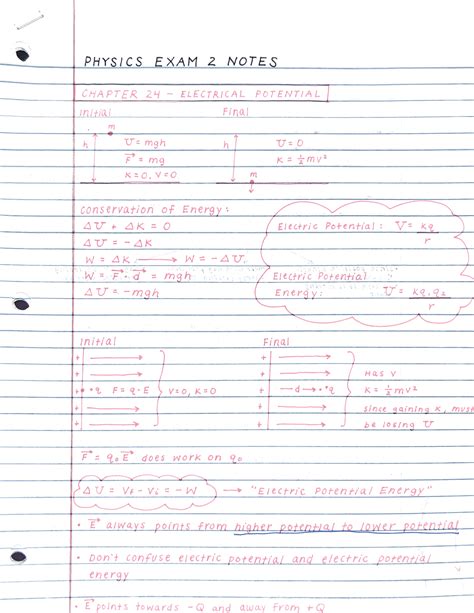 PHYSICS EXAM 2 NOTES
CHAPTER 24 - ELECTRICAL POTENTIAL
Initial Final
m
h U = mgh h U = 0
F = mg K = ½mv²
K = 0, V = 0 m
Conservation of Energy:
ΔU + ΔK = 0 Electric Potential: V = kq/r
ΔU = -ΔK
W = ΔK → W = -ΔU
W = F · d = mgh Electric Potential
ΔU = -mgh Energy: U = kq₁q₀/r
Initial Final
+ → + →
+ → + → Has V
+ •q F = q·E V=0, K=0 + —d→ •q K = ½mv²
+ → + → since gaining K, must
+ → + → be losing U
F = q₀E does work on q₀
ΔU = Vf - Vi = -W → "Electric Potential Energy"
• E always points from higher potential to lower potential
• Don't confuse electric potential and electric potential
energy
• E points towards -Q and away from +Q